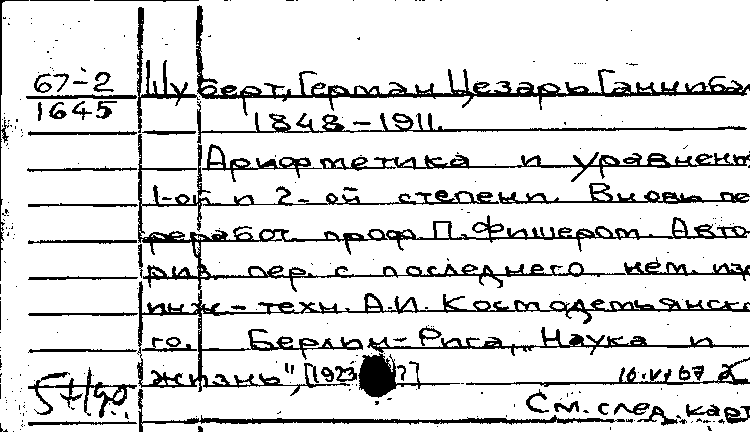 67-2 Шуберт, Герман Цезарь Ганниба
1645
1848-1911.
Арифметика и уравнени
1-ой и 2-ой степени. Вновь пе
реработ. проф. П. Фишером. Авто-
риз. пер. с последнего нем. изд
инж-техн. А.И. Космодемьянско
го. Берлин-Рига, „Наука и
жизнь", [1923 ?]
10.VI.67
См. след. карт